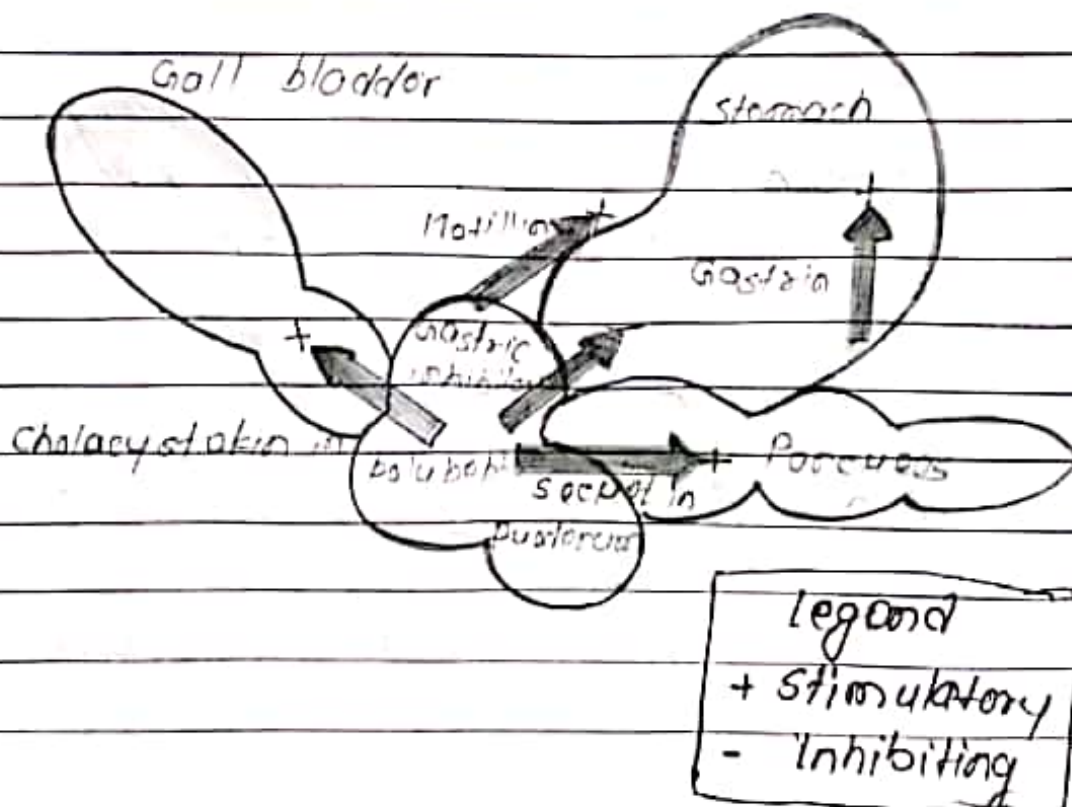 Gall bladder
Stomach
Motillin
Gastrin
+
+
Gastric
inhibitory
+
Cholacystokin in
+
Pancreas
Secretin
Duodenum
legand
+ Stimulatory
- Inhibiting